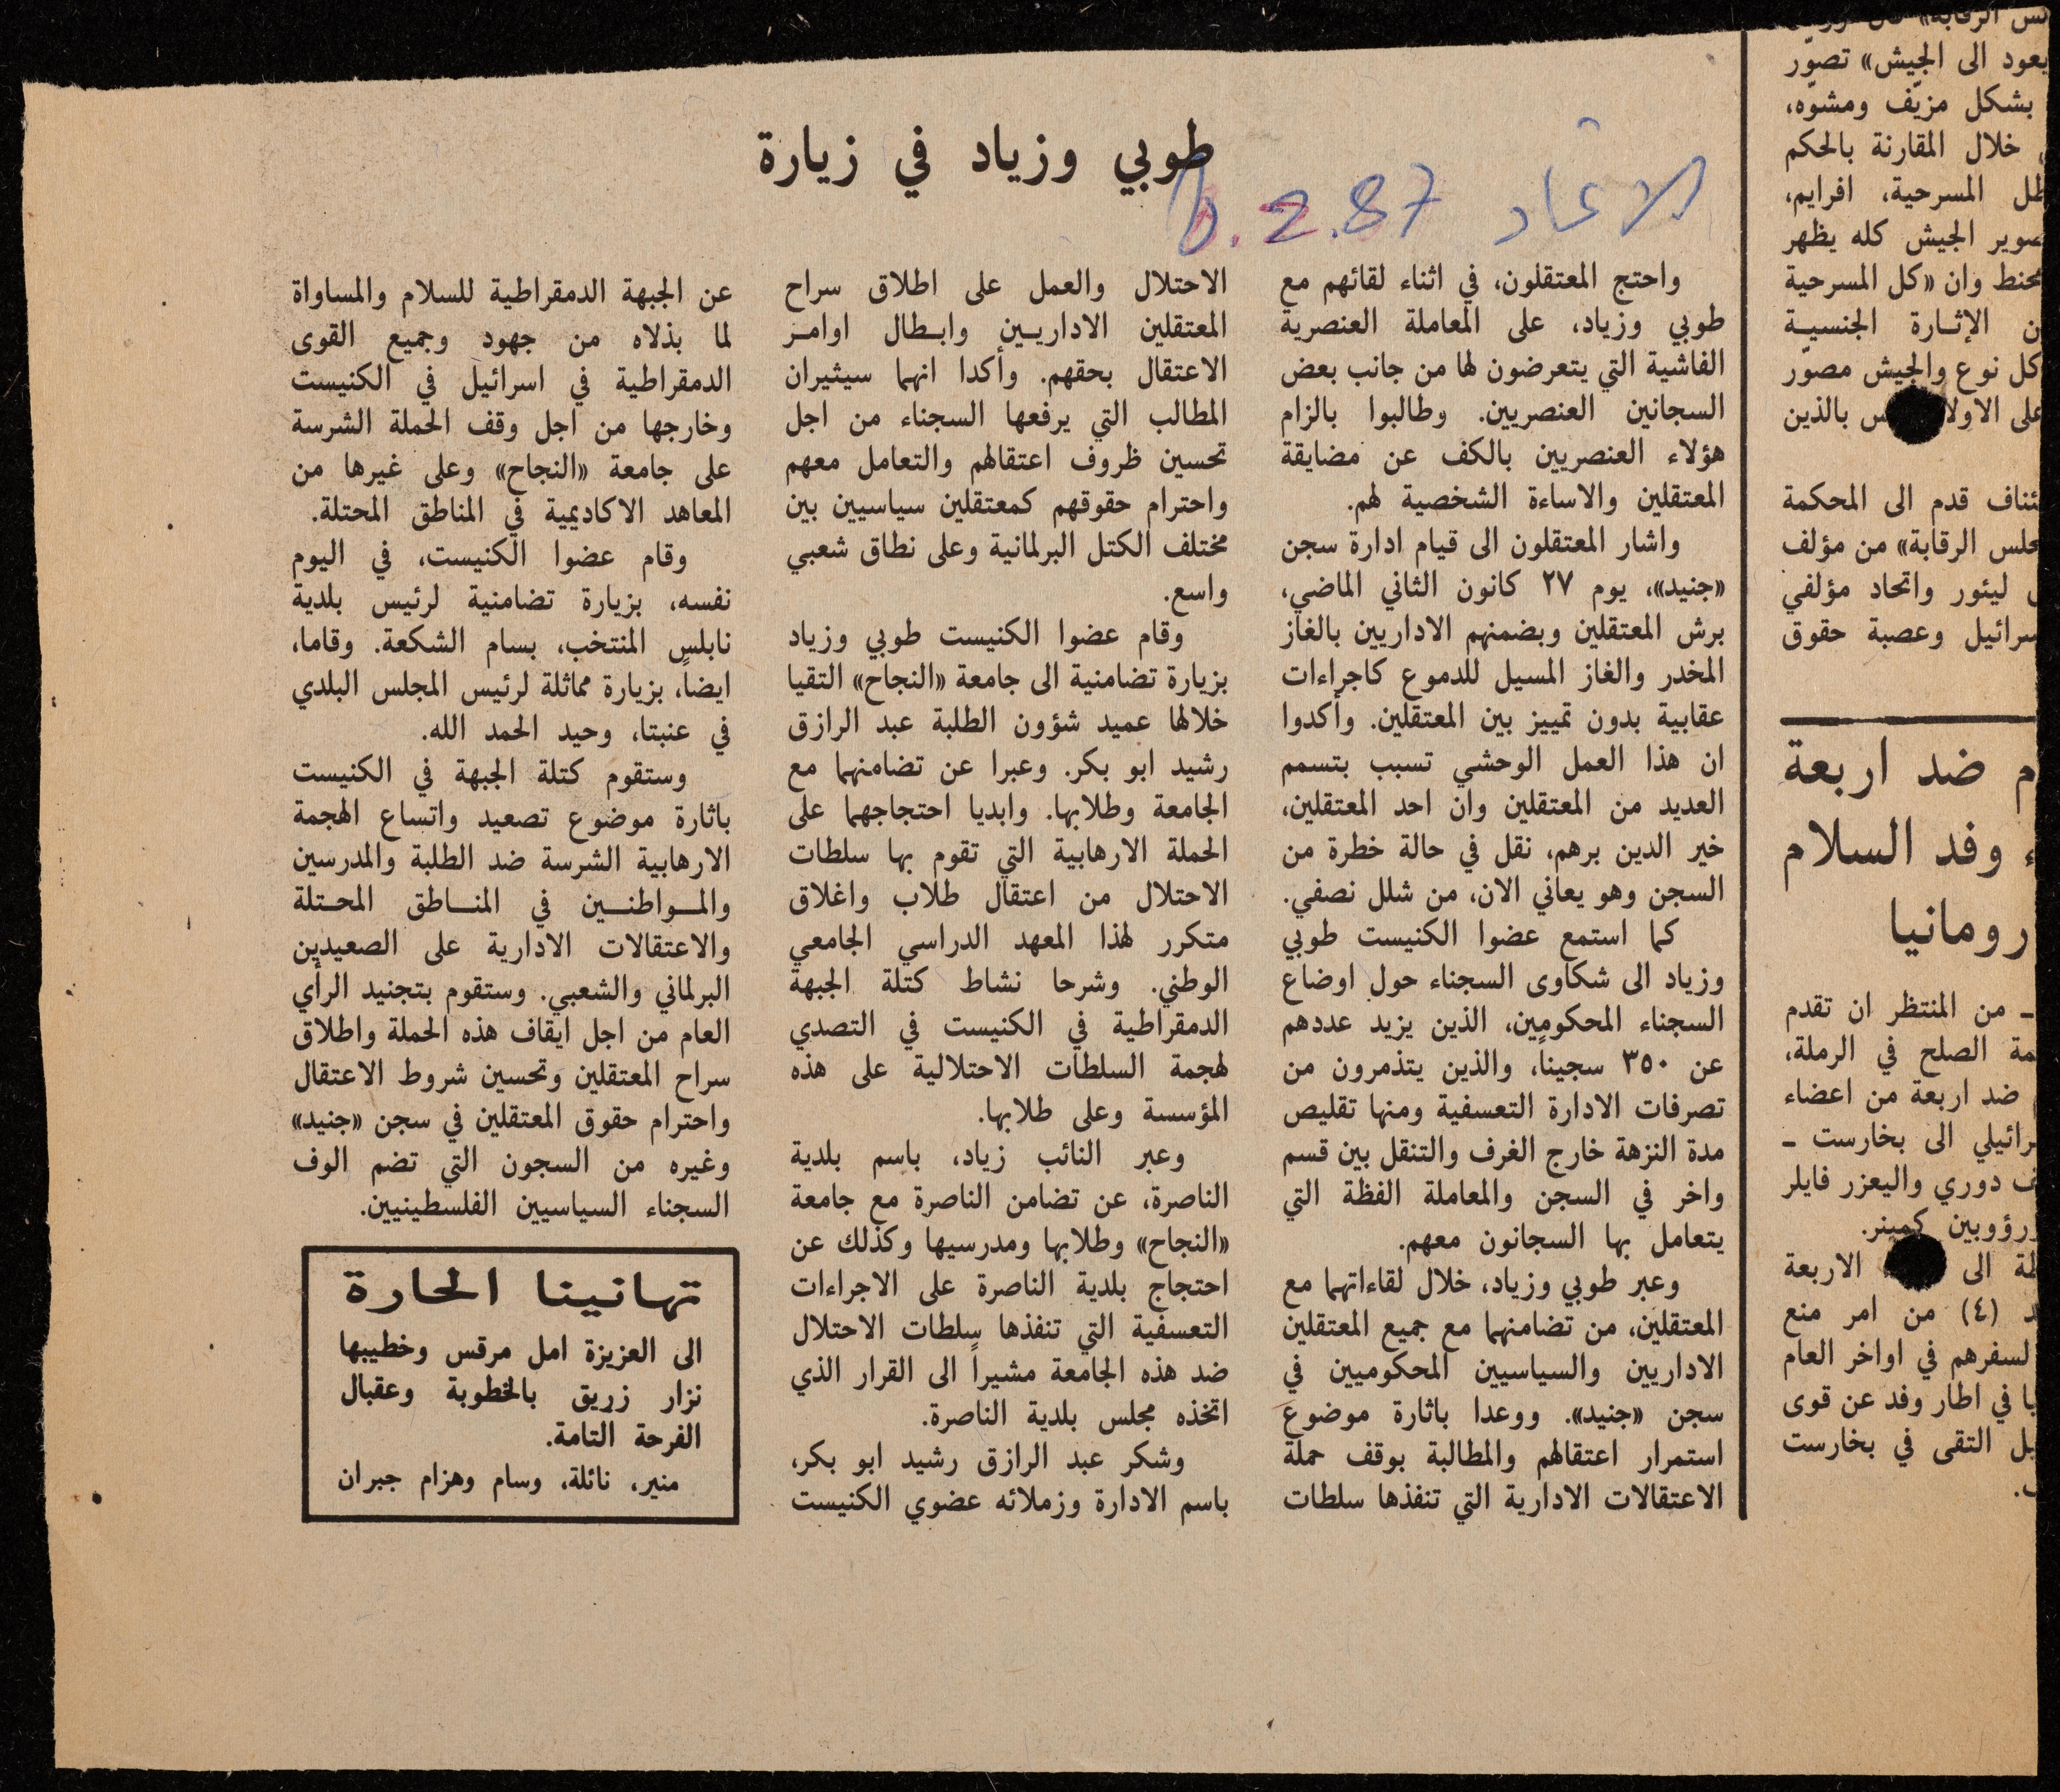 طوبي وزياد في زيارة
الاتحاد 6.2.87
واحتج المعتقلون، في اثناء لقائهم مع
طوبي وزياد، على المعاملة العنصرية
الفاشية التي يتعرضون لها من جانب بعض
السجانين العنصريين. وطالبوا بالزام
هؤلاء العنصريين بالكف عن مضايقة
المعتقلين والاساءة الشخصية لهم.
واشار المعتقلون الى قيام ادارة سجن
«جنيد»، يوم ٢٧ كانون الثاني الماضي،
برش المعتقلين وبضمنهم الاداريين بالغاز
المخدر والغاز المسيل للدموع كاجراءات
عقابية بدون تمييز بين المعتقلين. وأكدوا
ان هذا العمل الوحشي تسبب بتسمم
العديد من المعتقلين وان احد المعتقلين،
خير الدين برهم، نقل في حالة خطرة من
السجن وهو يعاني الان، من شلل نصفي.
كما استمع عضوا الكنيست طوبي
وزياد الى شكاوى السجناء حول اوضاع
السجناء المحكومين، الذين يزيد عددهم
عن ٣٥٠ سجيناً، والذين يتذمرون من
تصرفات الادارة التعسفية ومنها تقليص
مدة النزهة خارج الغرف والتنقل بين قسم
واخر في السجن والمعاملة الفظة التي
يتعامل بها السجانون معهم.
وعبر طوبي وزياد، خلال لقاءاتهما مع
المعتقلين، من تضامنهما مع جميع المعتقلين
الاداريين والسياسيين المحكوميين في
سجن «جنيد». ووعدا باثارة موضوع
استمرار اعتقالهم والمطالبة بوقف حملة
الاعتقالات الادارية التي تنفذها سلطات
الاحتلال والعمل على اطلاق سراح
المعتقلين الاداريـين وابـطال اوامـر
الاعتقال بحقهم. وأكدا انهما سيثيران
المطالب التي يرفعها السجناء من اجل
تحسين ظروف اعتقالهم والتعامل معهم
واحترام حقوقهم كمعتقلين سياسيين بين
مختلف الكتل البرلمانية وعلى نطاق شعبي
واسع.
وقام عضوا الكنيست طوبي وزياد
بزيارة تضامنية الى جامعة «النجاح» التقيا
خلالها عميد شؤون الطلبة عبد الرازق
رشيد ابو بكر. وعبرا عن تضامنهما مع
الجامعة وطلابها. وابديا احتجاجهما على
الحملة الارهابية التي تقوم بها سلطات
الاحتلال من اعتقال طلاب واغلاق
متكرر لهذا المعهد الدراسي الجامعي
الوطني. وشرحا نشاط كتلة الجبهة
الدمقراطية في الكنيست في التصدي
لهجمة السلطات الاحتلالية على هذه
المؤسسة وعلى طلابها.
وعبر النائب زياد، باسم بلدية
الناصرة، عن تضامن الناصرة مع جامعة
«النجاح» وطلابها ومدرسيها وكذلك عن
احتجاج بلدية الناصرة على الاجراءات
التعسفية التي تنفذها سلطات الاحتلال
ضد هذه الجامعة مشيراً الى القرار الذي
اتخذه مجلس بلدية الناصرة.
وشكر عبد الرازق رشيد ابو بكر،
باسم الادارة وزملائه عضوي الكنيست
عن الجبهة الدمقراطية للسلام والمساواة
لما بذلاه من جهود وجميع القوى
الدمقراطية في اسرائيل في الكنيست
وخارجها من اجل وقف الحملة الشرسة
على جامعة «النجاح» وعلى غيرها من
المعاهد الاكاديمية في المناطق المحتلة.
وقام عضوا الكنيست، في اليوم
نفسه، بزيارة تضامنية لرئيس بلدية
نابلس المنتخب، بسام الشكعة. وقاما،
ايضاً، بزيارة مماثلة لرئيس المجلس البلدي
في عنبتا، وحيد الحمد الله.
وستقوم كتلة الجبهة في الكنيست
باثارة موضوع تصعيد واتساع الهجمة
الارهابية الشرسة ضد الطلبة والمدرسين
والمـواطنـين في المنـاطق المحـتلة
والاعتقالات الادارية على الصعيدين
البرلماني والشعبي. وستقوم بتجنيد الرأي
العام من اجل ايقاف هذه الحملة واطلاق
سراح المعتقلين وتحسين شروط الاعتقال
واحترام حقوق المعتقلين في سجن «جنيد»
وغيره من السجون التي تضم الوف
السجناء السياسيين الفلسطينيين.
تهانينا الحارة
الى العزيزة امل مرقس وخطيبها
نزار زريق بالخطوبة وعقبال
الفرحة التامة.
منير، نائلة، وسام وهزام جبران
يعود الى الجيش» تصوّر
بشكل مزيّف ومشوّه،
خلال المقارنة بالحكم
المسرحية، افرايم،
الجيش كله يظهر
وان «كل المسرحية
الإثـارة الجنسيـة
كل نوع والجيش مصوّر
على بالذين
قدم الى المحكمة
الرقابة» من مؤلف
ليئور واتحاد مؤلفي
وعصبة حقوق
ضد اربعة
وفد السلام
رومانيا
ـ من المنتظر ان تقدم
الصلح في الرملة،
ضد اربعة من اعضاء
الى بخارست ـ
دوري واليعزر فايلر
ورؤوبين كمينر.
الى الاربعة
(٤) من امر منع
لسفرهم في اواخر العام
في اطار وفد عن قوى
التقى في بخارست